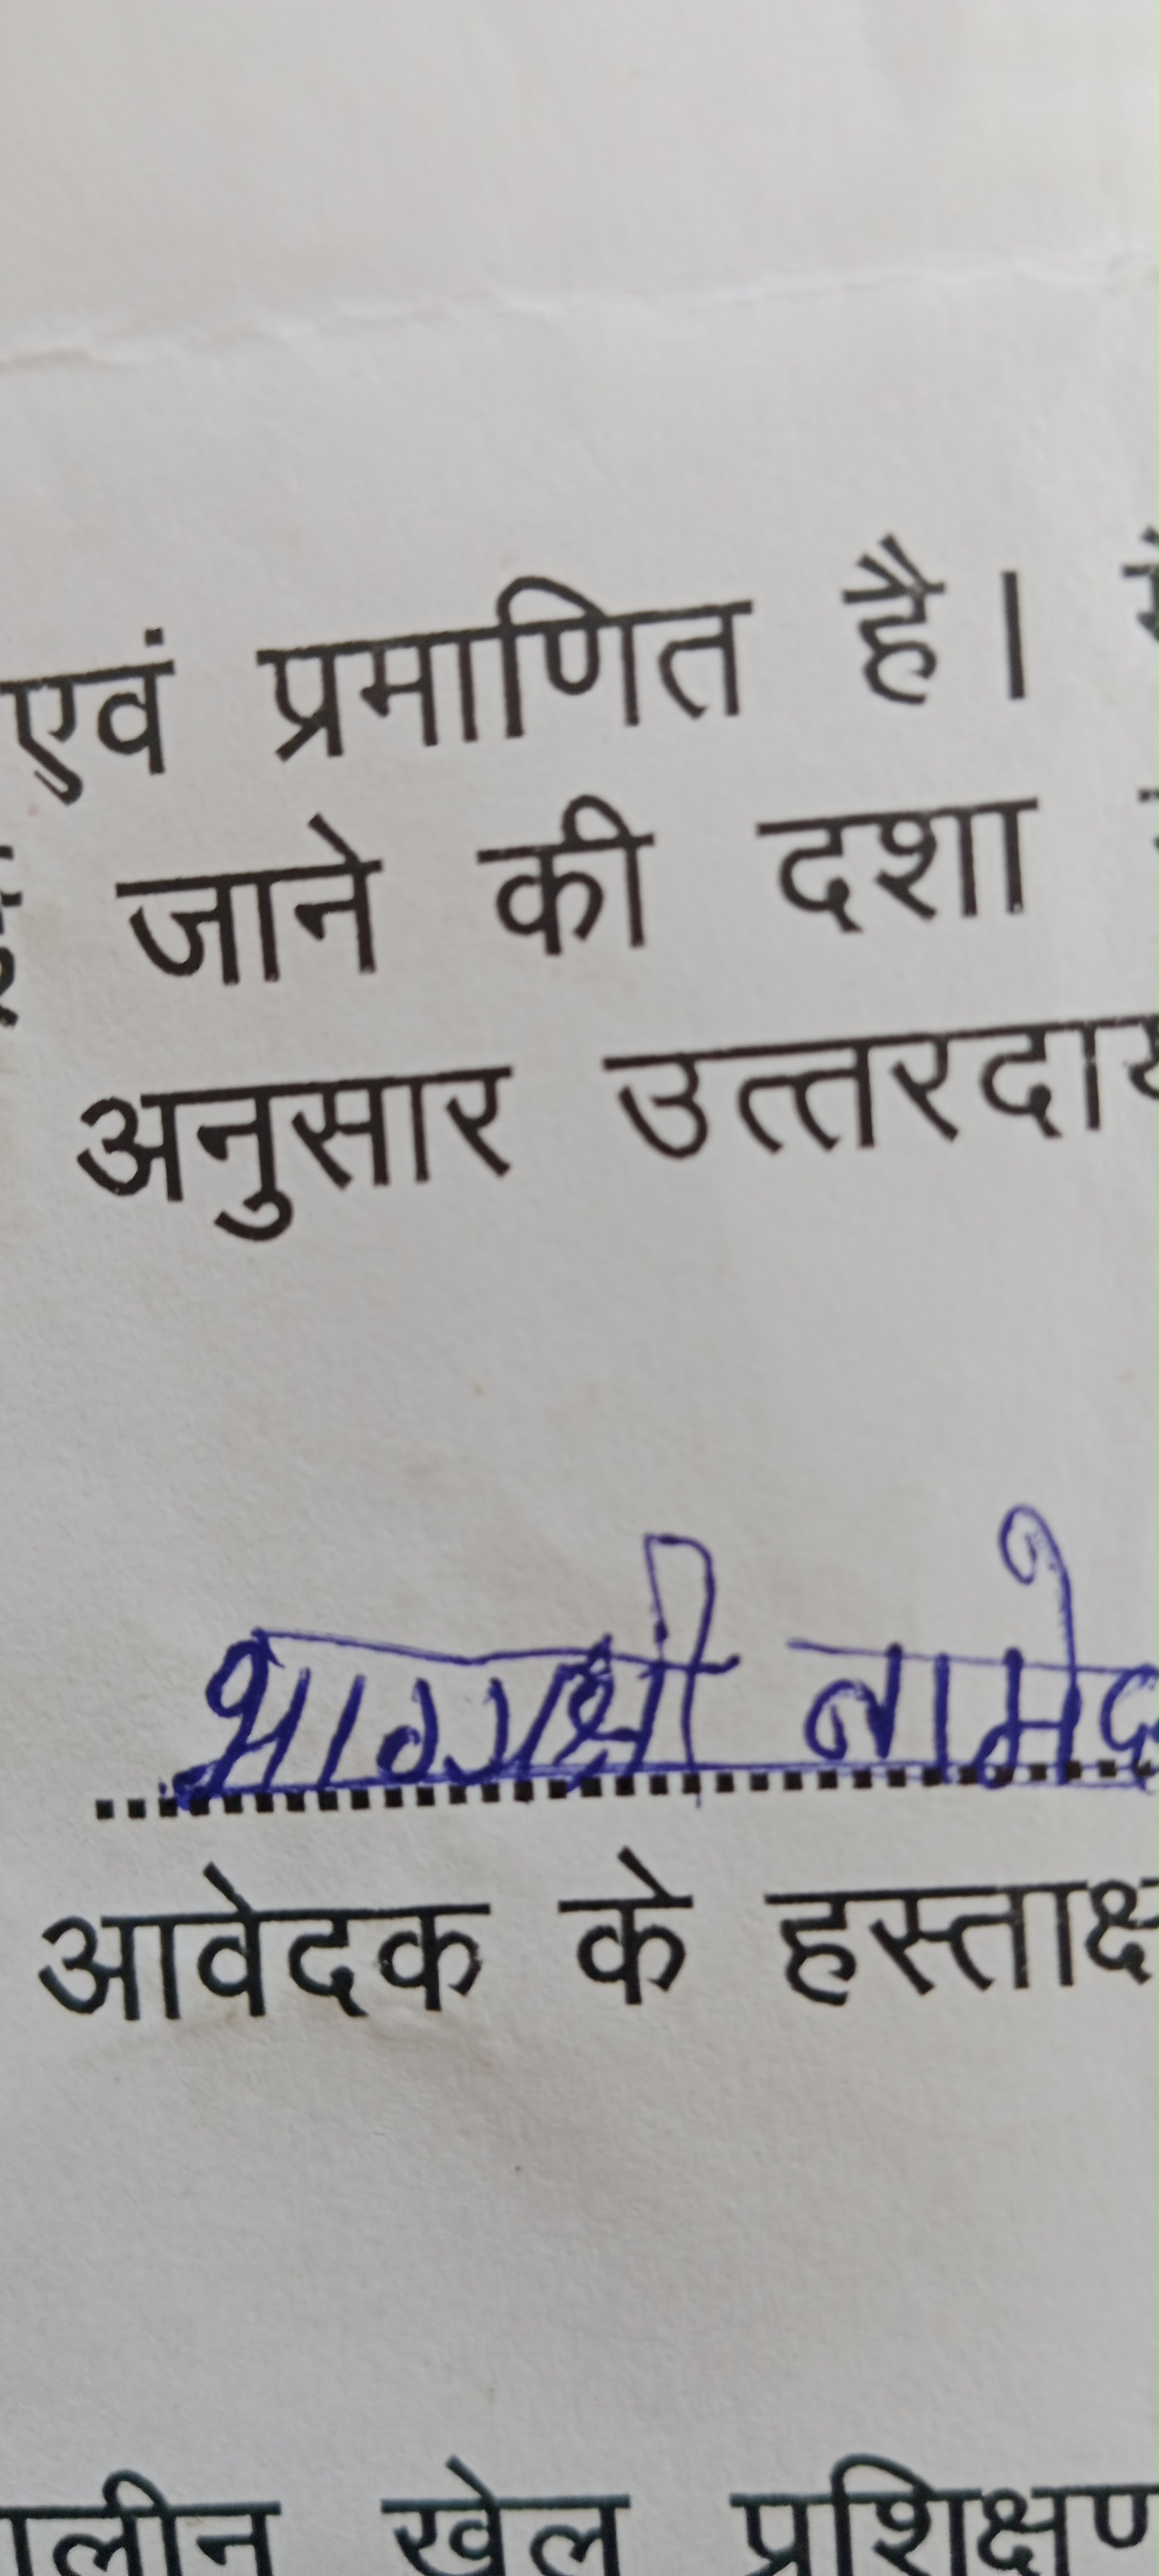 एवं प्रमाणित है।
जाने की दशा
अनुसार उत्तरदाय
भाग्यश्री नामदे
आवेदक के हस्ताक्ष
ालीन खेल प्रशिक्षण